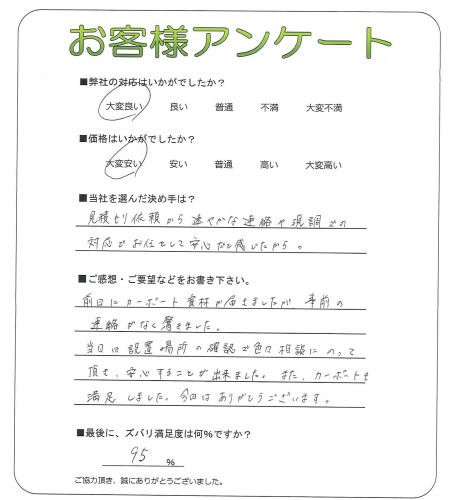 お客様アンケート
■弊社の対応はいかがでしたか？
大変良い 良い 普通 不満 大変不満
■価格はいかがでしたか？
大変安い 安い 普通 高い 大変高い
■当社を選んだ決め手は？
見積もり依頼から速やかな連絡や現調での
対応がお任せして安心だと感じたから。
■ご感想・ご要望などをお書き下さい。
前日にカーポート資材が届きましたが、事前の
連絡がなく驚きました。
当日は設置場所の確認で色々相談にのって
頂き、安心することが出来ました。また、カーポートも
満足しました。今回はありがとうございます。
■最後に、ズバリ満足度は何%ですか？
95 %
ご協力頂き、誠にありがとうございました。